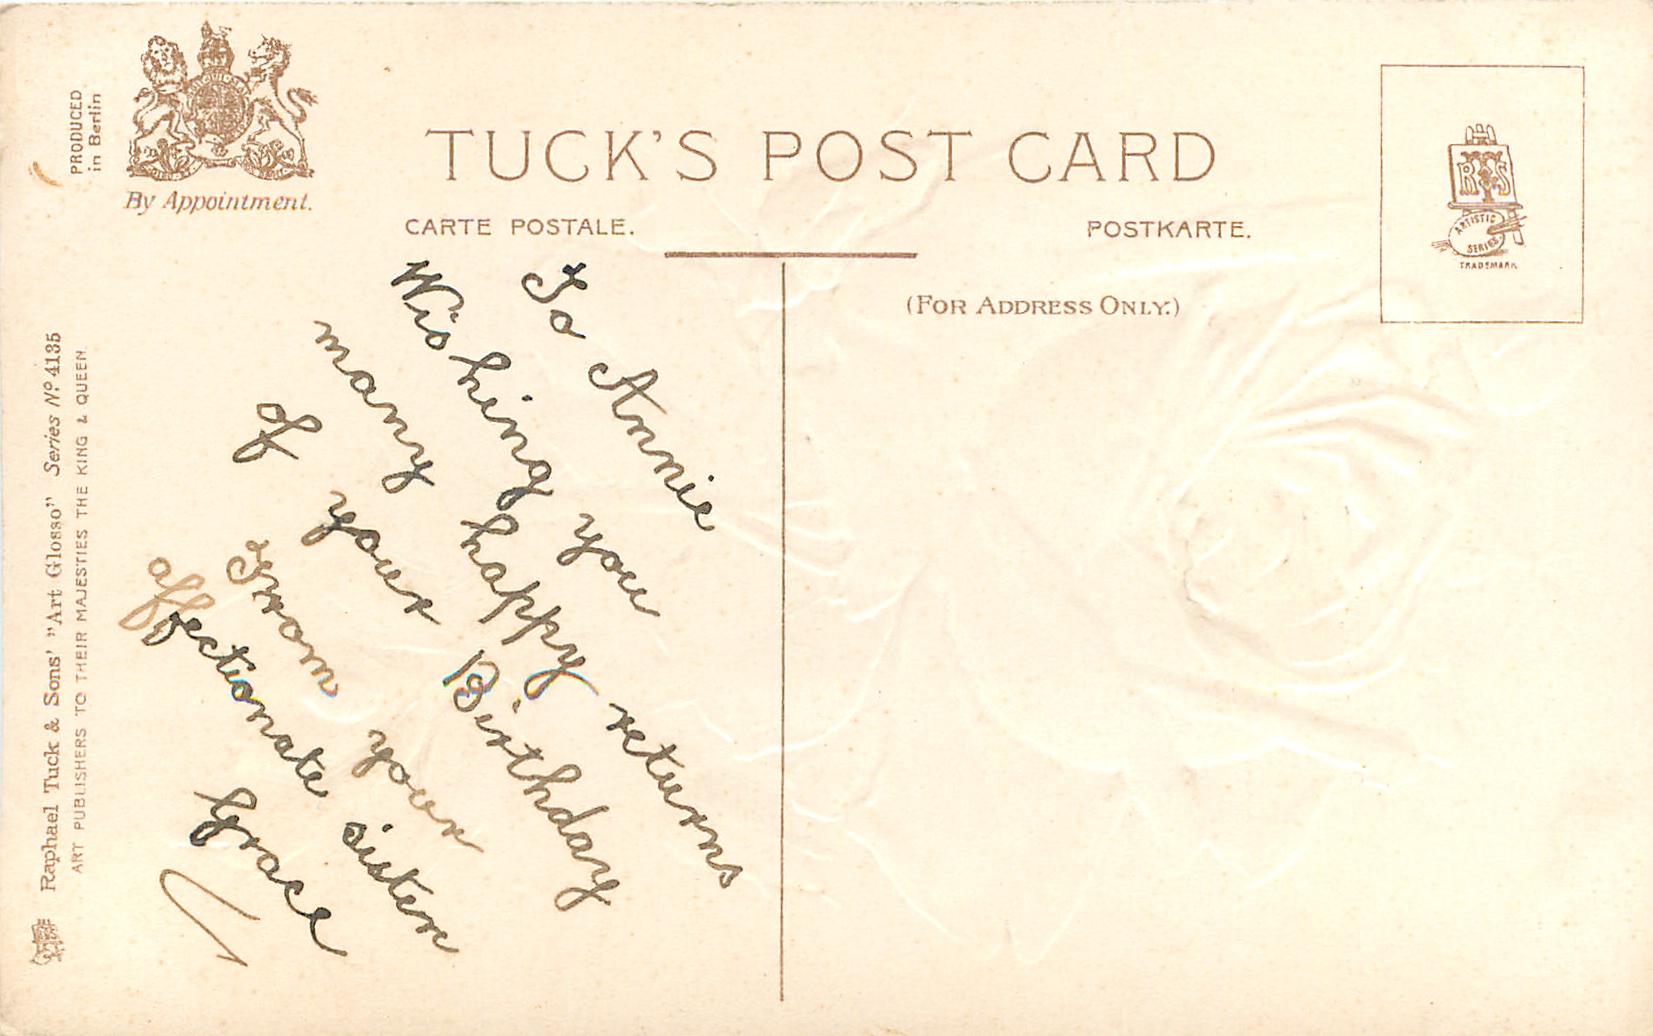 PRODUCED
in Berlin
By Appointment.
TUCK'S POST CARD
CARTE POSTALE.
POSTKARTE.
(FOR ADDRESS ONLY.)
R T S
ARTISTIC
SERIES
TRADEMARK
To Annie
Wishing you
many happy returns
of your Birthday
From your
affectionate sister
Grace
Raphael Tuck & Sons' "Art Glosso" Series Nº 4135
ART PUBLISHERS TO THEIR MAJESTIES THE KING & QUEEN